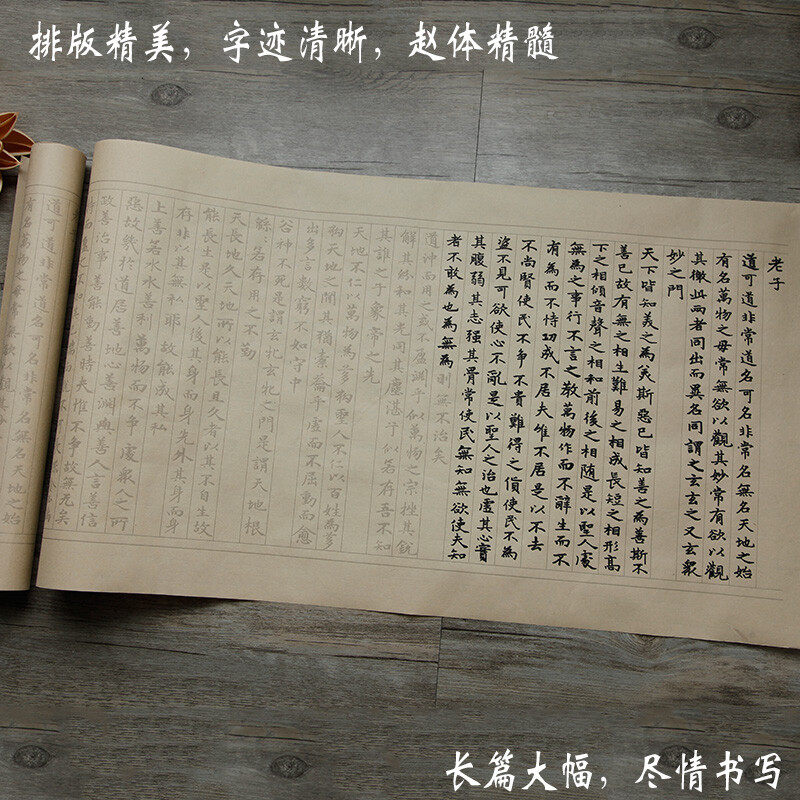 排版精美，字迹清晰，赵体精髓
老子
道可道非常道名可名非常名無名天地之始
有名萬物之母常無欲以觀其妙常有欲以觀
其徼此兩者同出而異名同謂之玄玄之又玄衆
妙之門
天下皆知美之為美斯惡已皆知善之為善斯不
善已故有無之相生難易之相成長短之相形高
下之相傾音聲之相和前後之相随是以聖人處
無為之事行不言之教萬物作而不辭生而不
有為而不恃功成不居夫惟不居是以不去
不尚賢使民不争不貴難得之貨使民不為
盗不見可欲使心不亂是以聖人之治也虛其心實
其腹弱其志强其骨常使民無知無欲使夫知
者不敢為也為無為
則無不治矣
道沖而用之或不盈淵乎似萬物之宗挫其銳
解其紛和其光同其塵湛乎似若存吾不知
其誰之子象帝之先
天地不仁以萬物為芻狗聖人不仁以百姓為芻
狗天地之間其猶橐籥乎虛而不屈動而愈
出多言數窮不如守中
谷神不死是謂玄牝玄牝之門是謂天地根
綿綿若存用之不勤
天長地久天地所以能長且久者以其不自生故
能長生是以聖人後其身而身先外其身而身
存非以其無私耶故能成其私
上善若水水善利萬物而不争處衆人之所
惡故幾於道居善地心善淵與善人言善信
政善治事善能動善時夫惟不争故無尤矣
道可道非常道名可名非常名無名天地之始
长篇大幅，尽情书写